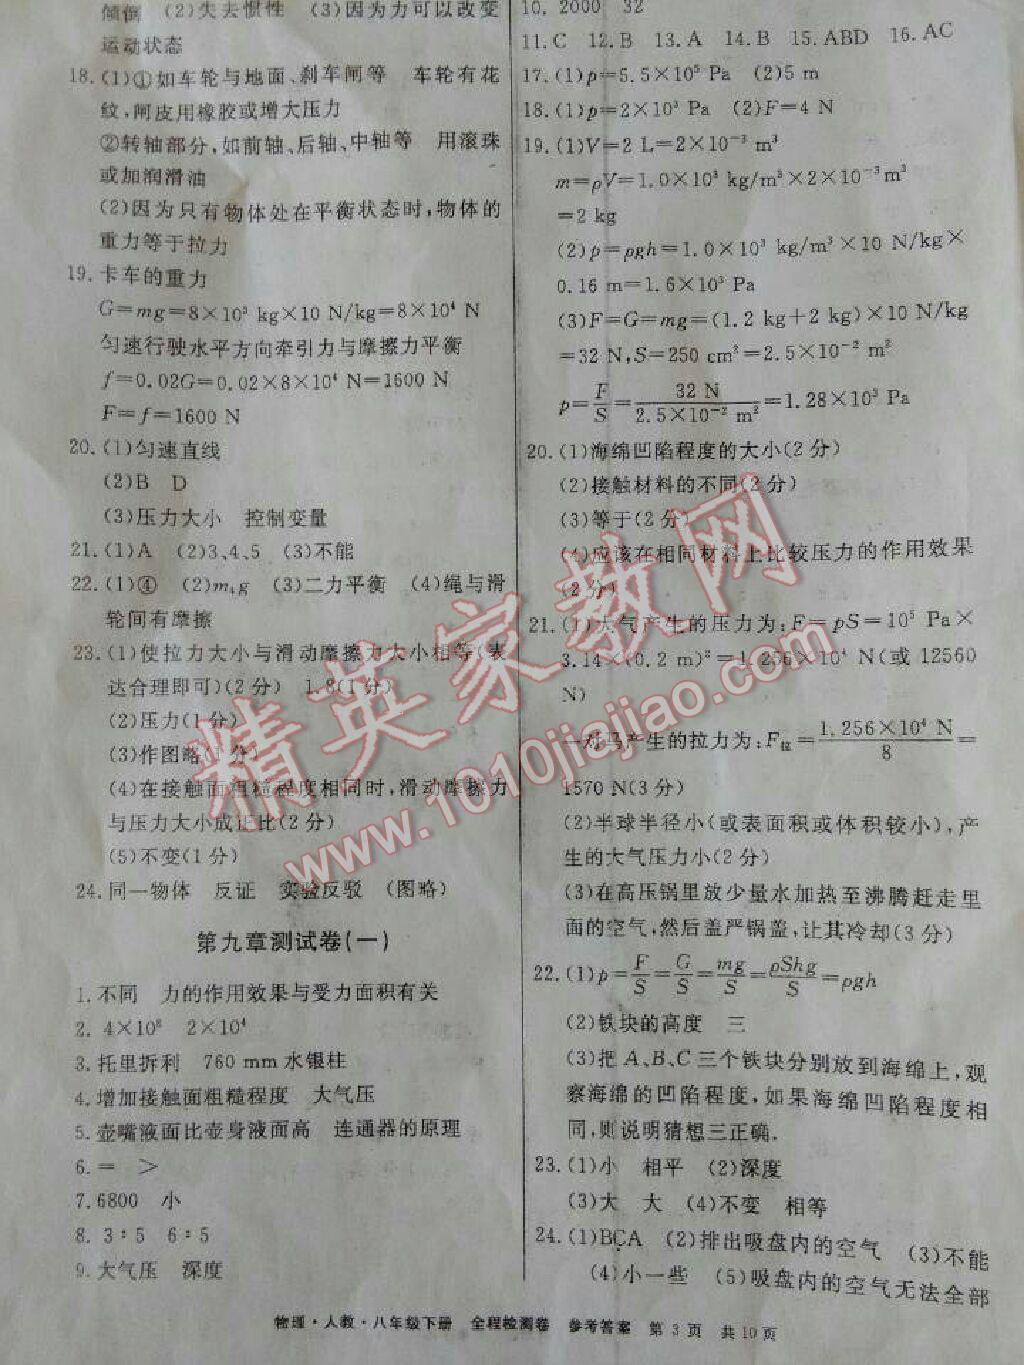 倾倒　(2)失去惯性　(3)因为力可以改变
运动状态
18.(1)①如车轮与地面、刹车闸等　车轮有花
纹,闸皮用橡胶或增大压力
②转轴部分,如前轴、后轴、中轴等　用滚珠
或加润滑油
(2)因为只有物体处在平衡状态时,物体的
重力等于拉力
19.卡车的重力
G=mg=8×10³ kg×10 N/kg=8×10⁴ N
匀速行驶水平方向牵引力与摩擦力平衡
f=0.02G=0.02×8×10⁴ N=1600 N
F=f=1600 N
20.(1)匀速直线
(2)B　D
(3)压力大小　控制变量
21.(1)A　(2)3、4、5　(3)不能
22.(1)④　(2)m₄g　(3)二力平衡　(4)绳与滑
轮间有摩擦
23.(1)使拉力大小与滑动摩擦力大小相等(表
达合理即可)(2分)　1.8(1分)
(2)压力(1分)
(3)作图略(1分)
(4)在接触面粗糙程度相同时,滑动摩擦力
与压力大小成正比(2分)
(5)不变(1分)
24.同一物体　反证　实验反驳　(图略)
第九章测试卷(一)
1.不同　力的作用效果与受力面积有关
2. 4×10⁸　2×10⁴
3.托里拆利　760 mm水银柱
4.增加接触面粗糙程度　大气压
5.壶嘴液面比壶身液面高　连通器的原理
6.=　>
7.6800　小
8. 3∶5　6∶5
9.大气压　深度
10. 2000　32
11.C　12.B　13.A　14.B　15.ABD　16.AC
17.(1)p=5.5×10⁵ Pa　(2)5 m
18.(1)p=2×10³ Pa　(2)F=4 N
19.(1)V=2 L=2×10⁻³ m³
m=ρV=1.0×10³ kg/m³×2×10⁻³m³
=2 kg
(2)p=ρgh=1.0×10³ kg/m³×10 N/kg×
0.16 m=1.6×10³ Pa
(3)F=G=mg=(1.2 kg+2 kg)×10 N/kg
=32 N,S=250 cm²=2.5×10⁻² m²
p=F/S=32 N/2.5×10⁻² m²=1.28×10³ Pa
20.(1)海绵凹陷程度的大小(2分)
(2)接触材料的不同(2分)
(3)等于(2分)
(4)应该在相同材料上比较压力的作用效果
(2分)
21.(1)大气产生的压力为:F=pS=10⁵ Pa×
3.14×(0.2 m)²=1.256×10⁴ N(或12560
N)
一对马产生的拉力为:F拉=1.256×10⁴ N/8=
1570 N(3分)
(2)半球半径小(或表面积或体积较小),产
生的大气压力小(2分)
(3)在高压锅里放少量水加热至沸腾赶走里
面的空气,然后盖严锅盖,让其冷却(3分)
22.(1)p=F/S=G/S=mg/S=ρShg/S=ρgh
(2)铁块的高度　三
(3)把A、B、C三个铁块分别放到海绵上,观
察海绵的凹陷程度,如果海绵凹陷程度相
同,则说明猜想三正确.
23.(1)小　相平　(2)深度
(3)大　大　(4)不变　相等
24.(1)BCA　(2)排出吸盘内的空气　(3)不能
(4)小一些　(5)吸盘内的空气无法全部
物理·人教·八年级下册　全程检测卷　参考答案　第3页　共10页
精英家教网
www.1010jiajiao.com